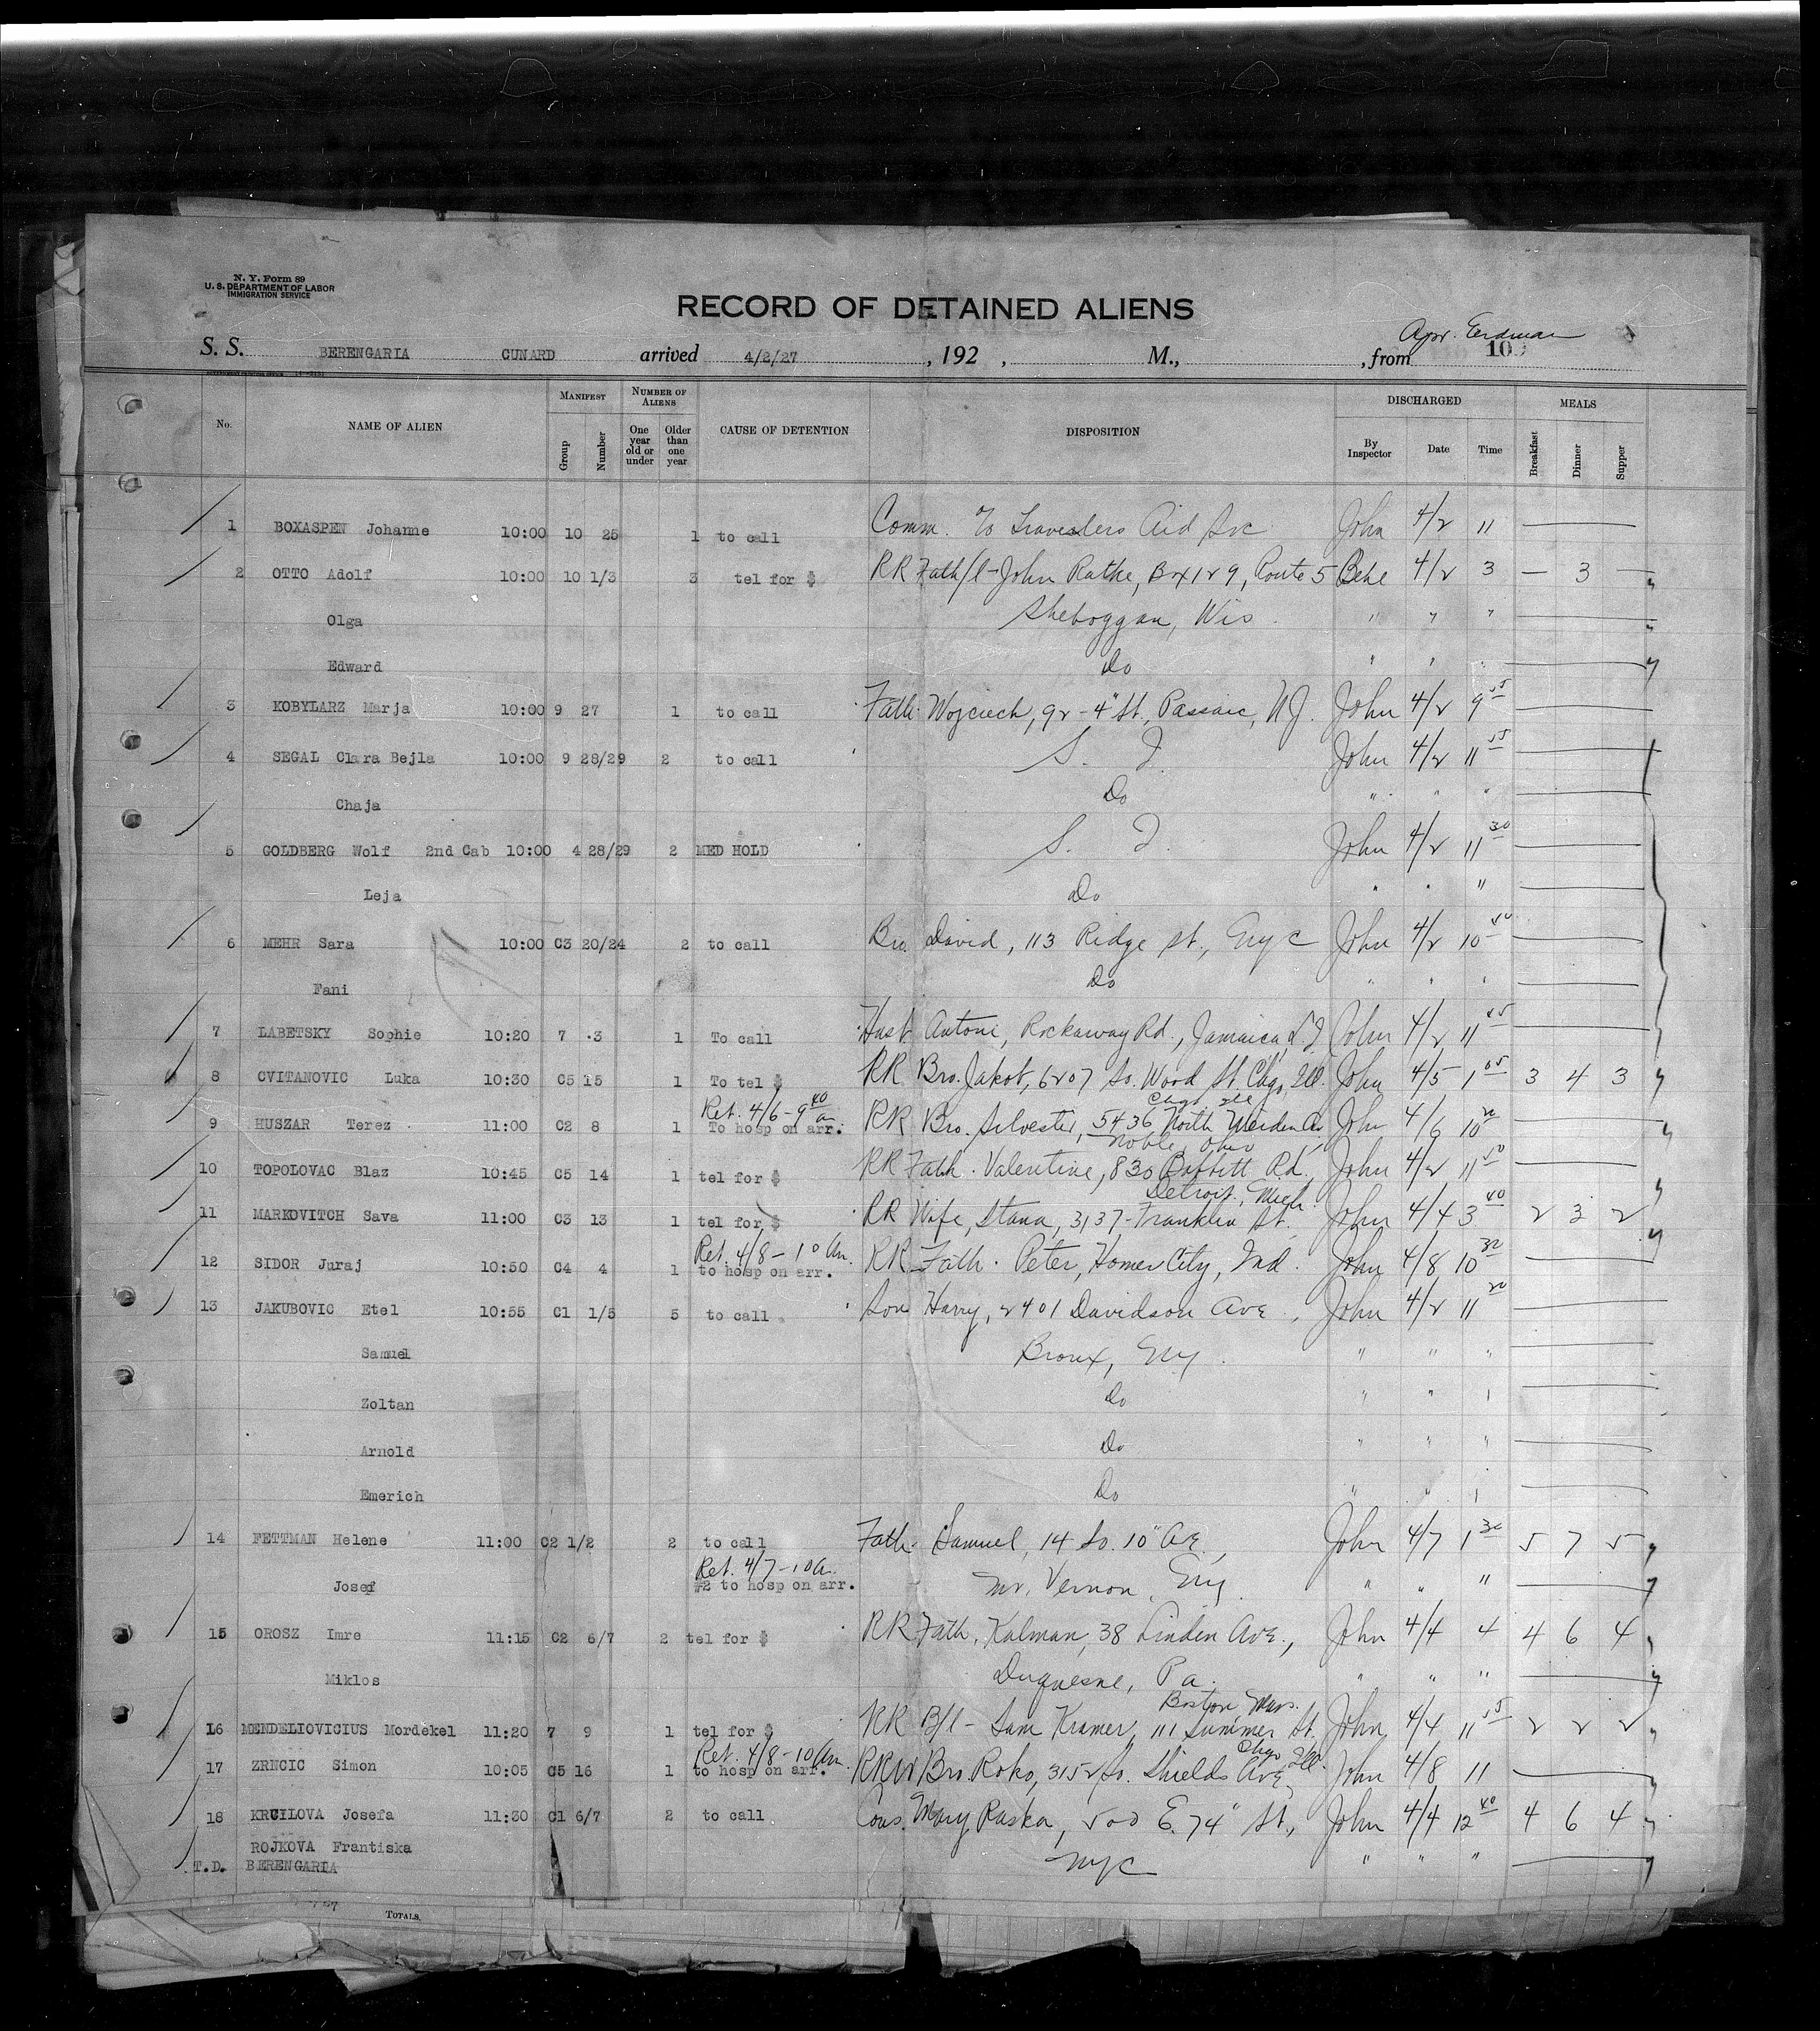 N. Y. Form 89
U. S. DEPARTMENT OF LABOR
IMMIGRATION SERVICE
RECORD OF DETAINED ALIENS
Apr. Erdman
S. S. BERENGARIA CUNARD arrived 4/2/27, 192 , M., , from 109
No. NAME OF ALIEN MANIFEST Group Number NUMBER OF ALIENS One year old or under Older than one year CAUSE OF DETENTION DISPOSITION DISCHARGED By Inspector Date Time MEALS Breakfast Dinner Supper
1 BOXASPEN Johanne 10:00 10 25 1 to call Comm. % Travelers Aid Soc John 4/2 11
2 OTTO Adolf 10:00 10 1/3 3 tel for $ RR Fath/l - John Rathe, Box 129, Route 5 Behe 4/2 3 — 3 —
Olga Sheboggan, Wis. " " "
Edward Do " " "
3 KOBYLARZ Marja 10:00 9 27 1 to call Fath. Wojciech, 92 - 4" St., Passaic, NJ. John 4/2 9 55
4 SEGAL Clara Bejla 10:00 9 28/29 2 to call S. I. John 4/2 11 55
Chaja Do " " "
5 GOLDBERG Wolf 2nd Cab 10:00 4 28/29 2 MED HOLD S. I. John 4/2 11 30
Leja Do " " "
6 MEHR Sara 10:00 C3 20/24 2 to call Bro. David, 113 Ridge St., NYC John 4/2 10 40
Fani Do " " "
7 LABETSKY Sophie 10:20 7 3 1 To call Husb Antoni, Rockaway Rd., Jamaica L.I. John 4/2 11 45
8 CVITANOVIC Luka 10:30 C5 15 1 To tel $ RR Bro. Jakob, 6207 So. Wood St. Chgo, Ill. John 4/5 1 05 3 4 3
Ret. 4/6 - 9 40 a Chgo Ill
9 HUSZAR Terez 11:00 C2 8 1 To hosp on arr. RR Bro. Silvester, 5436 North John 4/6 10 20
Noble, Ohio
10 TOPOLOVAC Blaz 10:45 C5 14 1 tel for $ RR Fath. Valentine, 830 Babbitt Rd. John 4/2 11 50
Detroit, Mich.
11 MARKOVITCH Sava 11:00 C3 13 1 tel for $ RR Wife, Stana, 3137 - Franklin St. John 4/4 3 40 2 3 2
Ret. 4/8 - 10 An.
12 SIDOR Juraj 10:50 C4 4 1 to hosp on arr. RR Fath. Peter, Homer City, Ind. John 4/8 10 32
13 JAKUBOVIC Etel 10:55 C1 1/5 5 to call Son Harry, 2401 Davidson Ave., John 4/2 11 20
Samuel Bronx, NY. " " "
Zoltan Do " " "
Arnold Do " " "
Emerich Do " " "
14 FETTMAN Helene 11:00 C2 1/2 2 to call Fath. Samuel, 14 So. 10" Ave., John 4/7 1 30 5 7 5
Ret. 4/7 - 10 a.
Josef #2 to hosp on arr. Mt. Vernon, NY. " " "
15 OROSZ Imre 11:15 C2 6/7 2 tel for $ RR Fath. Kalman, 38 Linden Ave., John 4/4 4 4 6 4
Miklos Duquesne, Pa. " " "
Boston, Mass.
16 MENDELIOVICIUS Mordekel 11:20 7 9 1 tel for $ RR B/l - Sam Kramer, 111 Summer St. John 4/4 11 55 2 2 2
Ret. 4/8 - 10 An. Chgo Ill.
17 ZRNCIC Simon 10:05 C5 16 1 to hosp on arr. RR Bro. Roko, 3152 So. Shields Ave John 4/8 11
18 KRCILOVA Josefa 11:30 C1 6/7 2 to call Cous. Mary Raska, 500 E. 74" St., John 4/4 12 40 4 6 4
ROJKOVA Frantiska
T.D. BERENGARIA NYC " " "
TOTALS.